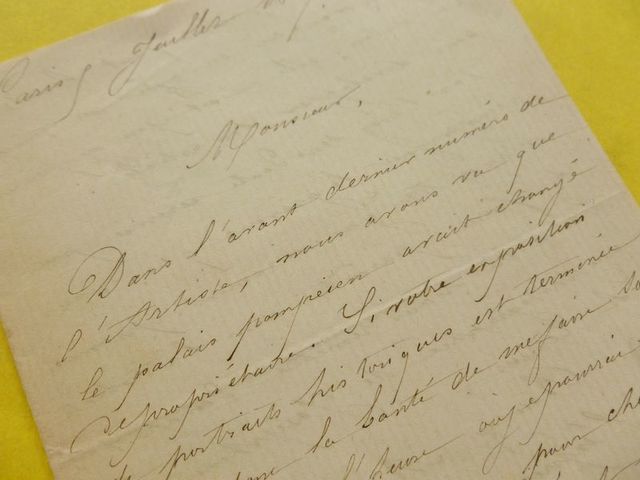 Paris Juillet
Monsieur,
Dans l'avant dernier numéro de
l'Artiste, nous avons vu que
le palais pompéien avait changé
de propriétaire. Si votre exposition
de portraits historiques est terminée
la bonté de me faire
l'heure où je pourrai
pour